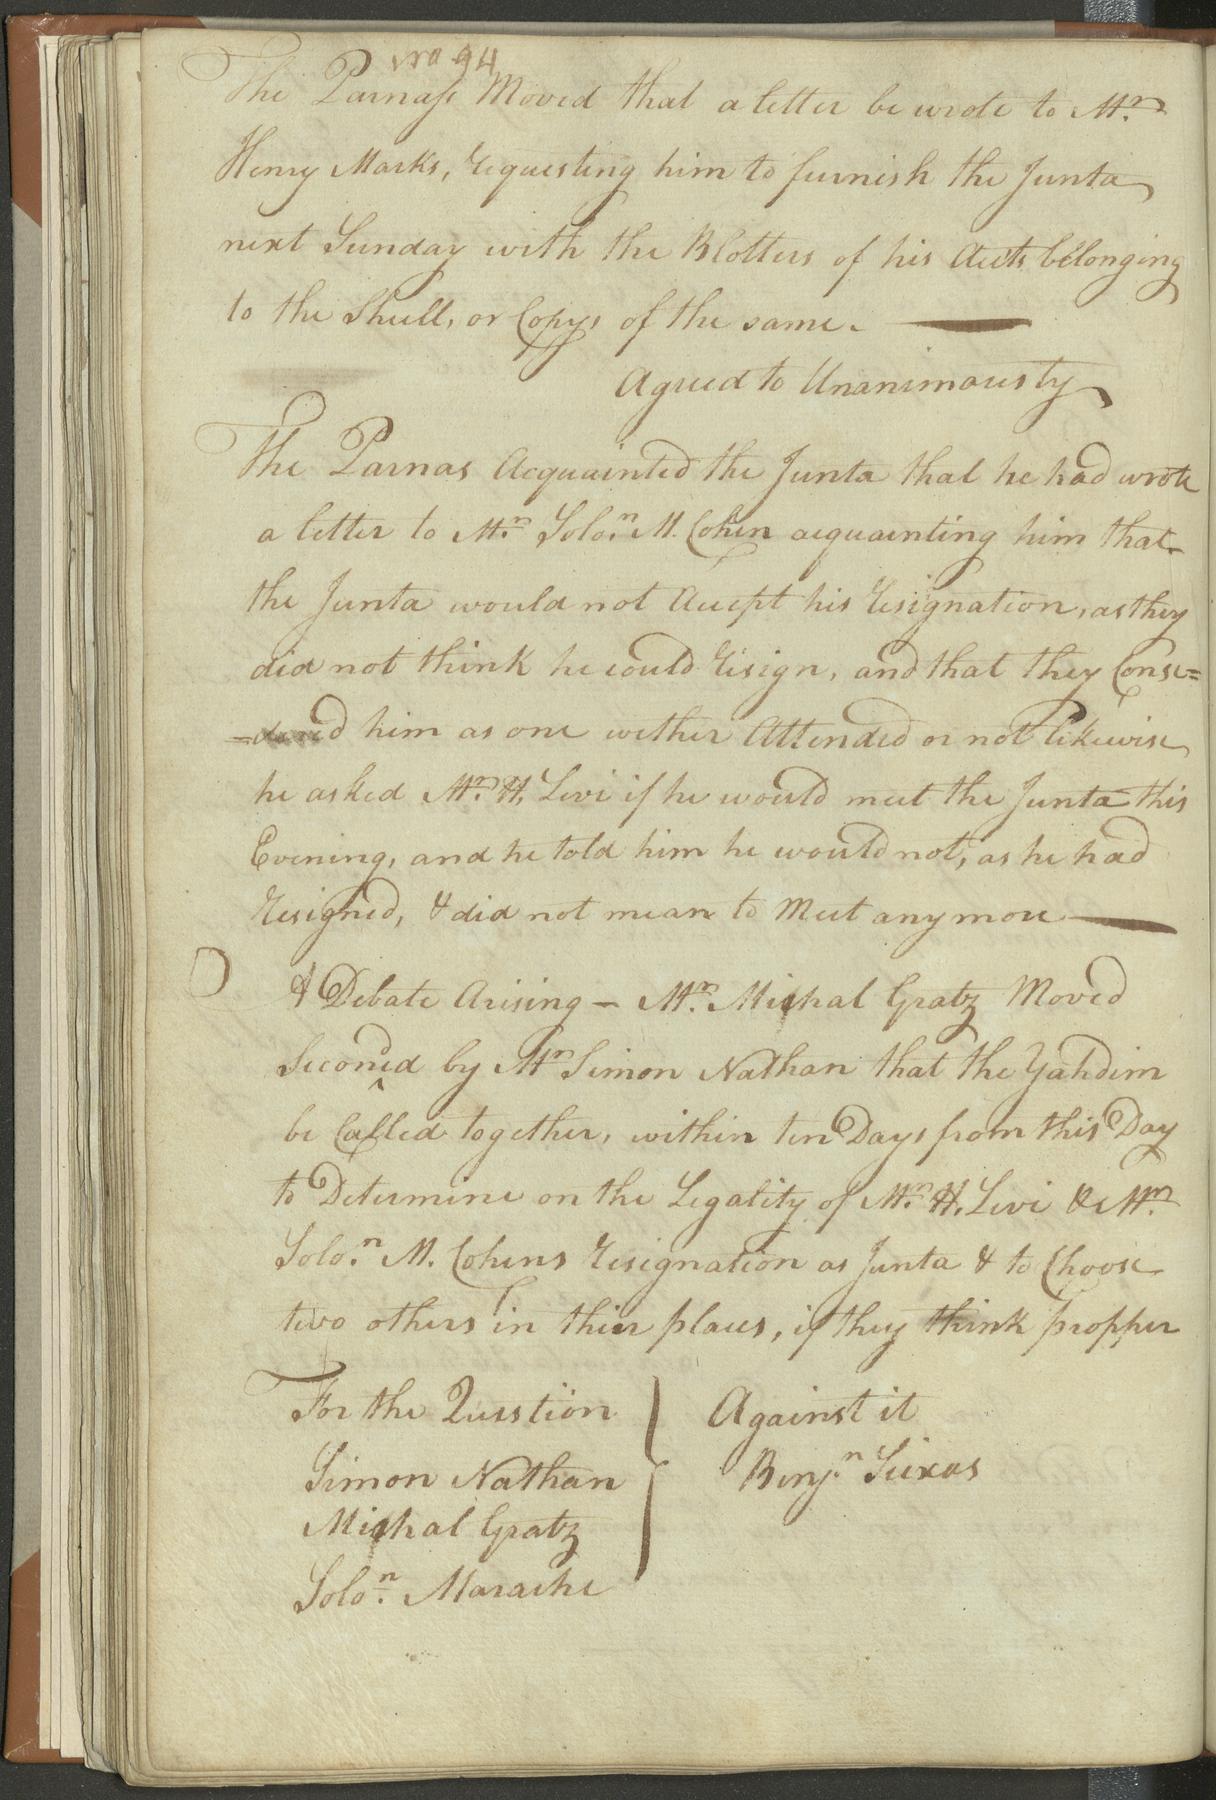 No 94
The Parnass Moved that a letter be wrote to Mr.
Henry Marks, requesting him to furnish the Junta
next Sunday with the Blotters of his Accts belonging
to the Shull, or Copys of the same.
Agreed to Unanimously
The Parnas Acquainted the Junta that he had wrote
a letter to Mr. Solon. M. Cohen acquainting him that
the Junta would not Accept his resignation, as they
did not think he could resign, and that they Conse=
=dered him as one wether Attended or not likewise
he asked Mr. H. Levi if he would meet the Junta this
Evening, and he told him he would not, as he had
resigned, & did not mean to Meet any more
A Debate Arising — Mr. Michal Gratz Moved
Seconded by Mr Simon Nathan that the Yahdim
be Called together, within ten Days from this Day
to Determine on the Legality of Mr. H. Levi & Mr.
Solon. M. Cohens resignation as Junta & to Choose
two others in their places, if they think propper
For the Question
Against it
Simon Nathan
Benjn Seixas
Michal Gratz
Solon. Marache